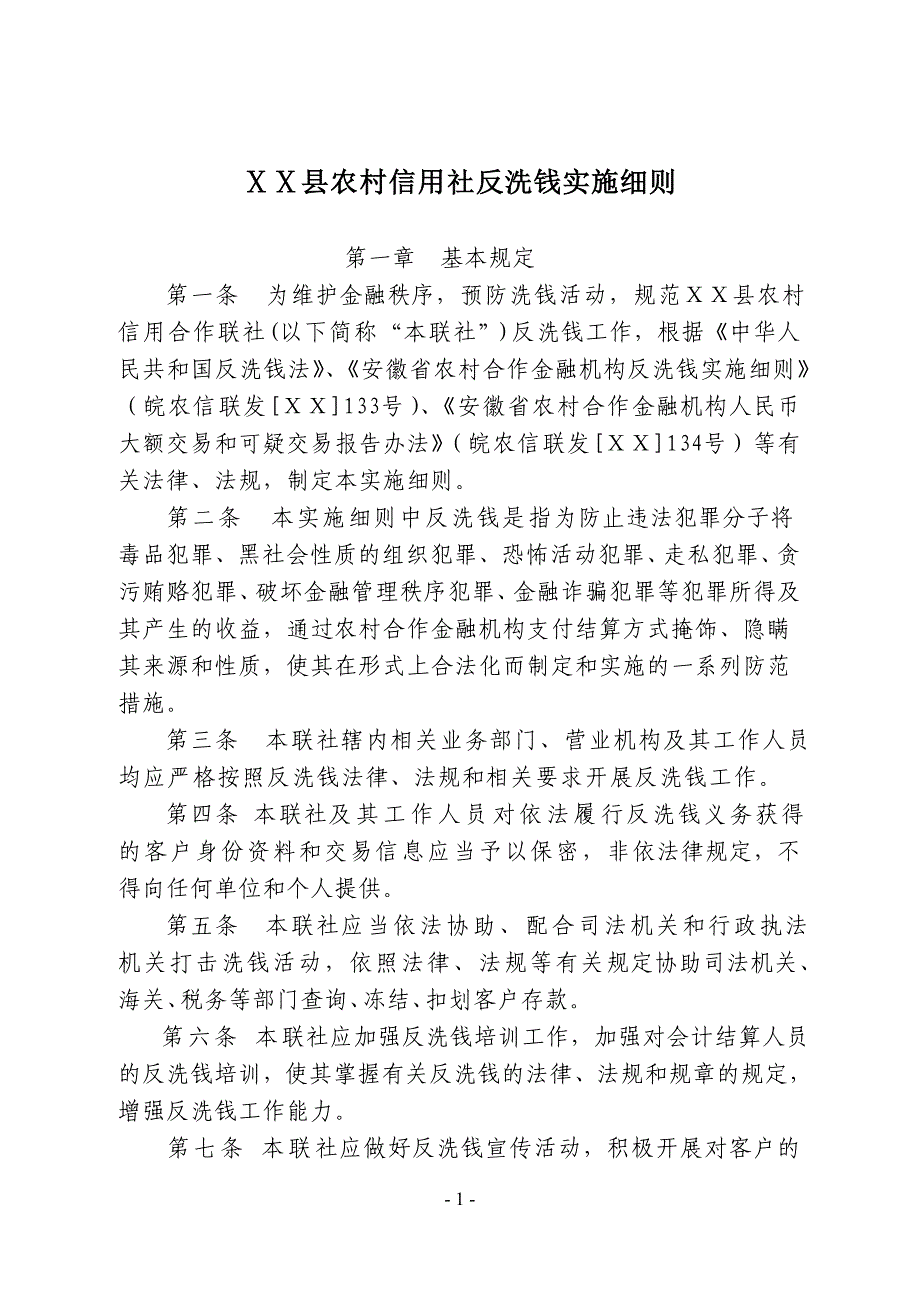 ＸＸ县农村信用社反洗钱实施细则
第一章　基本规定
第一条　为维护金融秩序，预防洗钱活动，规范ＸＸ县农村
信用合作联社(以下简称“本联社”)反洗钱工作，根据《中华人
民共和国反洗钱法》、《安徽省农村合作金融机构反洗钱实施细则》
（皖农信联发[ＸＸ]133号）、《安徽省农村合作金融机构人民币
大额交易和可疑交易报告办法》（皖农信联发[ＸＸ]134号）等有
关法律、法规，制定本实施细则。
第二条　本实施细则中反洗钱是指为防止违法犯罪分子将
毒品犯罪、黑社会性质的组织犯罪、恐怖活动犯罪、走私犯罪、贪
污贿赂犯罪、破坏金融管理秩序犯罪、金融诈骗犯罪等犯罪所得及
其产生的收益，通过农村合作金融机构支付结算方式掩饰、隐瞒
其来源和性质，使其在形式上合法化而制定和实施的一系列防范
措施。
第三条　本联社辖内相关业务部门、营业机构及其工作人员
均应严格按照反洗钱法律、法规和相关要求开展反洗钱工作。
第四条 本联社及其工作人员对依法履行反洗钱义务获得
的客户身份资料和交易信息应当予以保密，非依法律规定，不
得向任何单位和个人提供。
第五条　本联社应当依法协助、配合司法机关和行政执法
机关打击洗钱活动，依照法律、法规等有关规定协助司法机关、
海关、税务等部门查询、冻结、扣划客户存款。
第六条 本联社应加强反洗钱培训工作，加强对会计结算人员
的反洗钱培训，使其掌握有关反洗钱的法律、法规和规章的规定，
增强反洗钱工作能力。
第七条 本联社应做好反洗钱宣传活动，积极开展对客户的
- 1 -